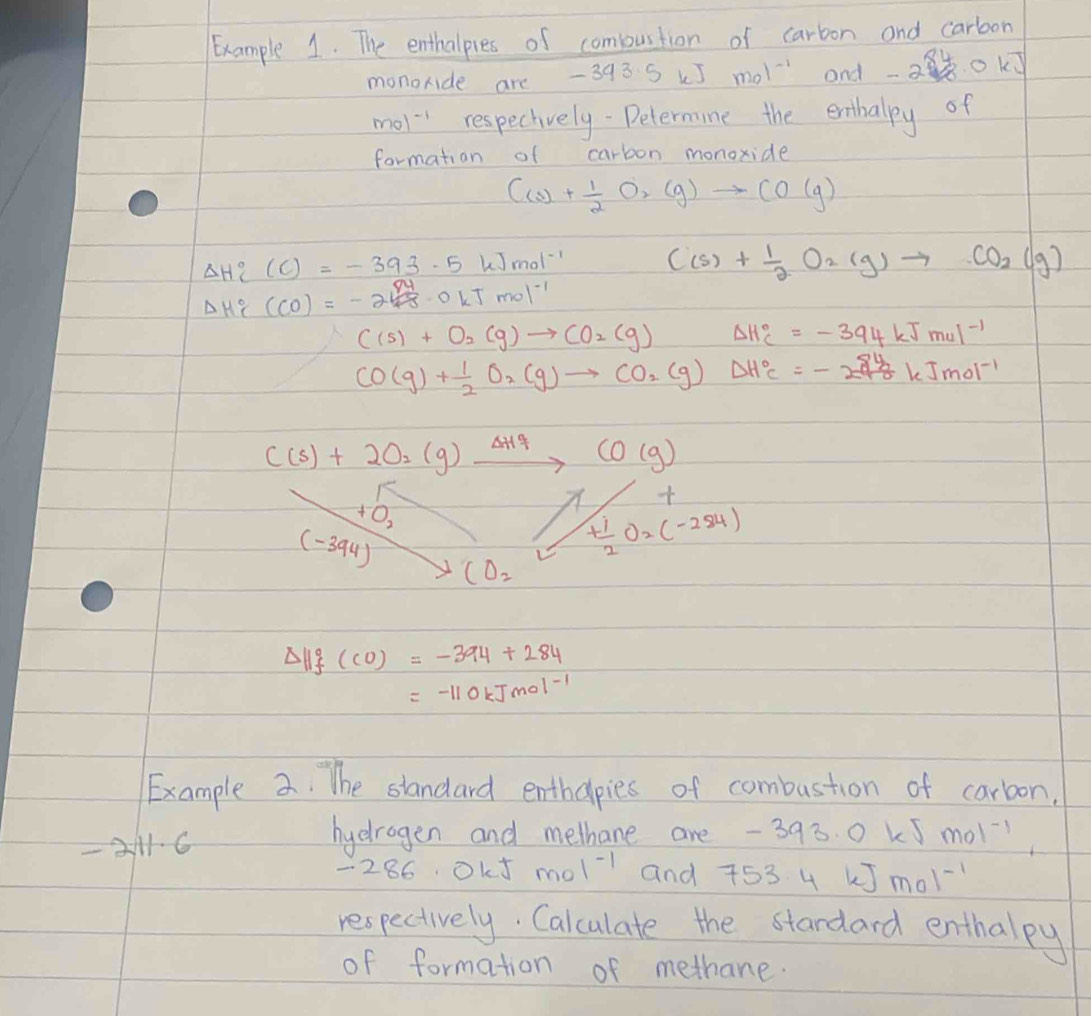 Example 1. The enthalpies of combustion of carbon and carbon
monoxide are -393.5 kJ mol⁻¹ and -284.0 kJ
mol⁻¹ respectively - Determine the enthalpy of
formation of carbon monoxide
C(s) + 1/2 O₂ (g) → CO (g)
ΔH°c (C) = -393.5 kJmol⁻¹ C(s) + 1/2 O₂ (g) → CO₂ (g)
ΔH°c (CO) = -284.0 kJ mol⁻¹
C(s) + O₂ (g) → CO₂ (g) ΔH°c = -394 kJ mol⁻¹
CO(g) + 1/2 O₂ (g) → CO₂ (g) ΔH°c = -284 kJmol⁻¹
C(s) + 2O₂ (g) ΔH°f → CO (g)
+O₂ +
(-394) +1/2 O₂ (-284)
CO₂
ΔH°f (CO) = -394 + 284
= -110kJmol⁻¹
Example 2. The standard enthalpies of combustion of carbon,
-211.6 hydrogen and methane are -393.0 kJ mol⁻¹,
-286.0kJ mol⁻¹ and 753.4 kJ mol⁻¹
respectively. Calculate the standard enthalpy
of formation of methane.